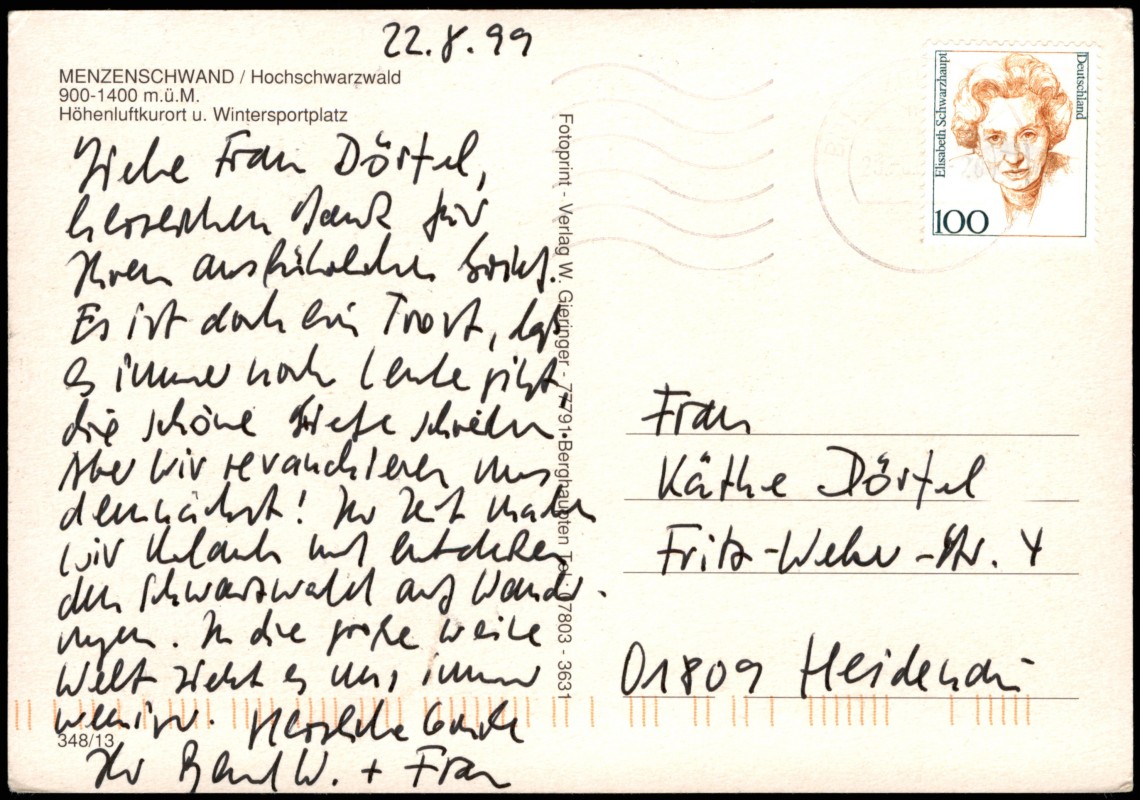 22.8.99
MENZENSCHWAND / Hochschwarzwald
900-1400 m.ü.M.
Höhenluftkurort u. Wintersportplatz
Liebe Frau Dörfel,
herzlichen Dank für
Ihren ausführlichen Brief.
Es ist doch ein Trost, daß
es immer noch Leute gibt,
die schöne Briefe schreiben.
Aber wir revanchieren uns
demnächst! Zur Zeit machen
wir Urlaub und entdecken
den Schwarzwald auf Wander-
ungen. In die große weite
Welt zieht es uns immer
weniger. Herzliche Grüße
Ihr W. + Frau
348/13
Fotoprint - Verlag W. Gieringer - 77791 Berghaupten Tel.: 07803 - 3631
Elisabeth Schwarzhaupt
Deutschland
100
Frau
Käthe Dörfel
Fritz-Weber-Str. 4
01809 Heidenau